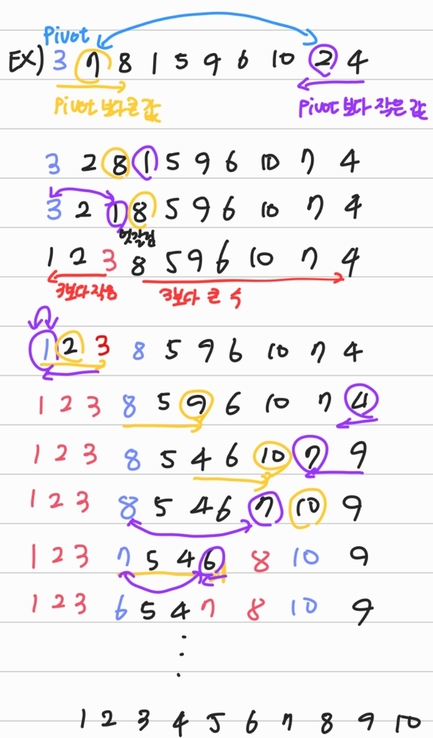 Pivot
EX) 3 7 8 1 5 9 6 10 2 4
Pivot 보다 큰 값 Pivot 보다 작은 값
3 2 8 1 5 9 6 10 7 4
3 2 1 8 5 9 6 10 7 4
엇갈림
1 2 3 8 5 9 6 10 7 4
3보다 작음 3보다 큰 수
1 2 3 8 5 9 6 10 7 4
1 2 3 8 5 9 6 10 7 4
1 2 3 8 5 4 6 10 7 9
1 2 3 8 5 4 6 7 10 9
1 2 3 7 5 4 6 8 10 9
1 2 3 6 5 4 7 8 10 9
1 2 3 4 5 6 7 8 9 10